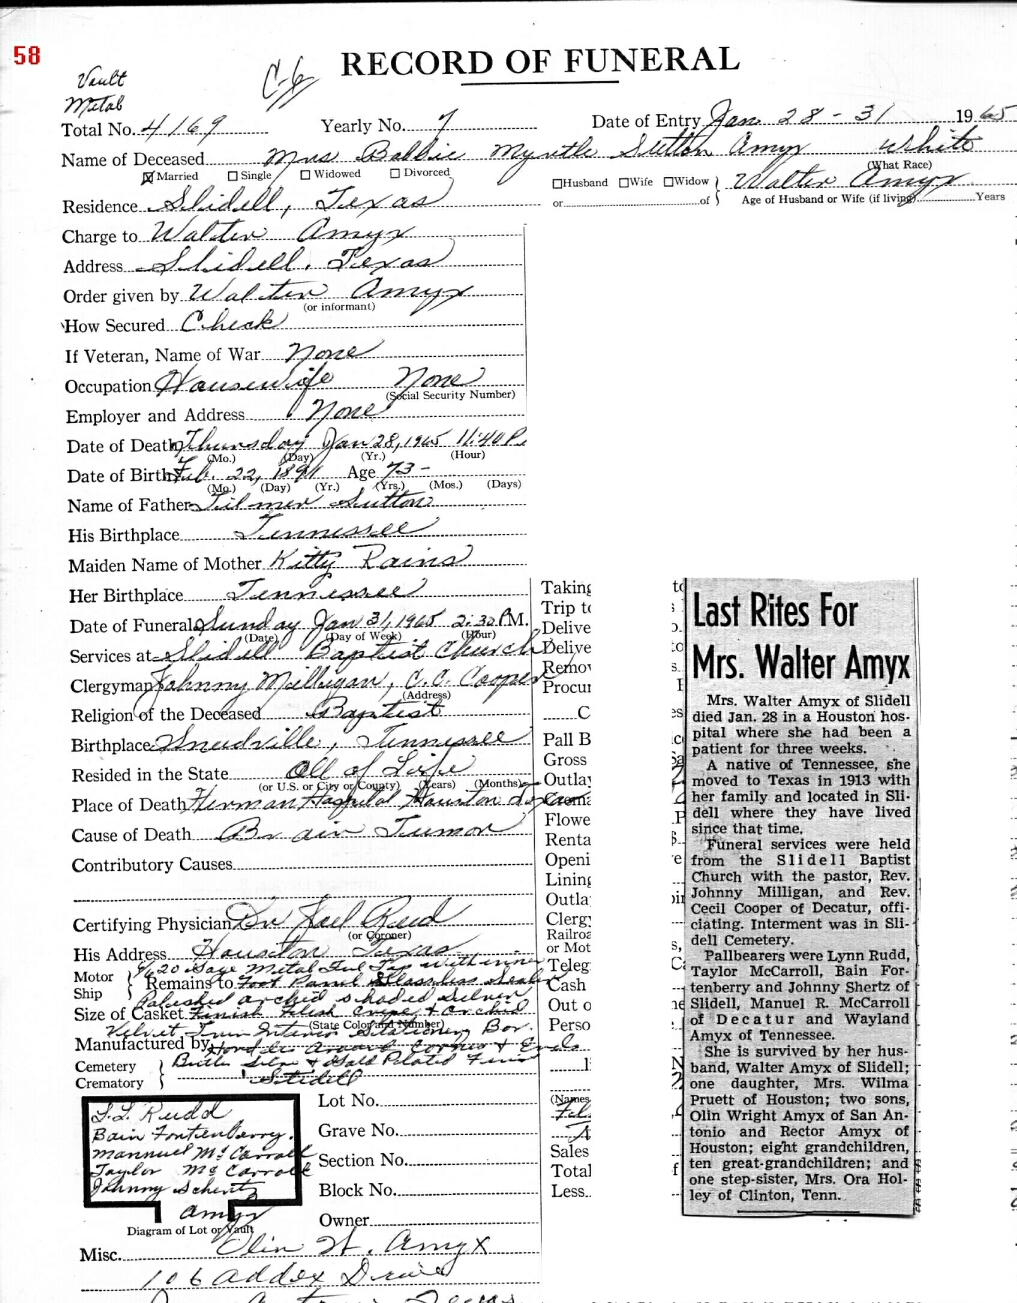 58
Vault
Metal
C-6
RECORD OF FUNERAL
Total No. 4169 Yearly No. 7 Date of Entry Jan. 28 - 31 1965
Name of Deceased Mrs Babbie Myrtle Sutton Amyx White
(What Race)
Married Single Widowed Divorced
Husband Wife Widow of Walter Amyx
or
Residence Slidell, Texas Age of Husband or Wife (if living) Years
Charge to Walter Amyx
Address Slidell, Texas
Order given by Walter Amyx
(or informant)
How Secured Check
If Veteran, Name of War None
Occupation Housewife None
(Social Security Number)
Employer and Address None
Date of Death Thursday Jan 28, 1965 11:40 P.
(Mo.) (Day) (Yr.) (Hour)
Date of Birth Feb. 22, 1891 Age 73 -
(Mo.) (Day) (Yr.) (Yrs.) (Mos.) (Days)
Name of Father Tilmer Sutton
His Birthplace Tennessee
Maiden Name of Mother Kitty Rains
Her Birthplace Tennessee
Date of Funeral Sunday Jan 31, 1965 2:30 P.M.
(Date) (Day of Week) (Hour)
Services at Slidell Baptist Church
Clergyman Johnny Milligan, C.C. Cooper
(Address)
Religion of the Deceased Baptist
Birthplace Sneudville, Tennessee
Resided in the State All of Life
(or U.S. or City or County) (Years) (Months)
Place of Death Herman Hospital Houston Texas
Cause of Death Brain Tumor
Contributory Causes
Certifying Physician Dr Joel Reed
(or Coroner)
His Address Houston Texas
Motor
Ship
Remains to
20 Gage Metal Ful Top with inner
Foot Panel Glassless Sealer
Polished orchid shaded silver
Size of Casket Finish Crepe & Orchid
(State Color and Number)
Velvet Interior Box.
Manufactured by
Cemetery
Crematory
& Gold Plated
Slidell
L.L. Rudd
Bain Fontenberry.
Mannuel McCarroll
Taylor McCarroll
Johnny Schertz
Amyx
Diagram of Lot or Vault
Lot No.
Grave No.
Section No.
Block No.
Owner
Misc. Olin W. Amyx
106 Addex Drive
Taking
Trip to
Delive
Delive
Remov
Procur
C
Pall B
Gross
Outlay
Flowe
Renta
Openi
Lining
Outla
Clergy
Railroa
or Mot
Teleg
Cash
Out o
Perso
(Names
Sales
Total
Less
Last Rites For
Mrs. Walter Amyx
Mrs. Walter Amyx of Slidell
died Jan. 28 in a Houston hos-
pital where she had been a
patient for three weeks.
A native of Tennessee, she
moved to Texas in 1913 with
her family and located in Sli-
dell where they have lived
since that time.
Funeral services were held
from the Slidell Baptist
Church with the pastor, Rev.
Johnny Milligan, and Rev.
Cecil Cooper of Decatur, offi-
ciating. Interment was in Sli-
dell Cemetery.
Pallbearers were Lynn Rudd,
Taylor McCarroll, Bain For-
tenberry and Johnny Shertz of
Slidell, Manuel R. McCarroll
of Decatur and Wayland
Amyx of Tennessee.
She is survived by her hus-
band, Walter Amyx of Slidell;
one daughter, Mrs. Wilma
Pruett of Houston; two sons,
Olin Wright Amyx of San An-
tonio and Rector Amyx of
Houston; eight grandchildren,
ten great-grandchildren; and
one step-sister, Mrs. Ora Hol-
ley of Clinton, Tenn.